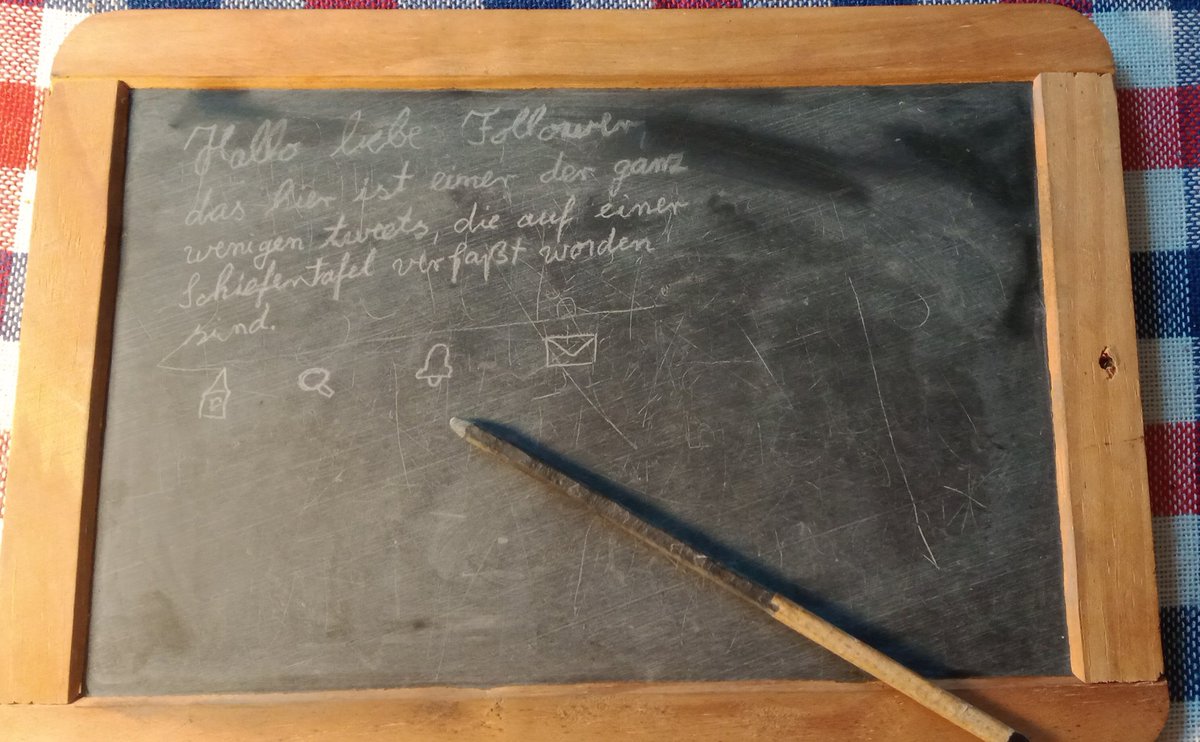 Hallo liebe Follower,
das hier ist einer der ganz
wenigen tweets, die auf einer
Schiefertafel verfaßt worden
sind.